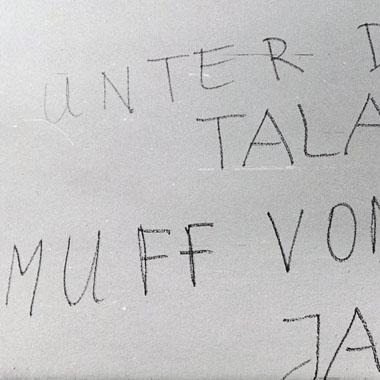 UNTER D
TALA
MUFF VON
JA